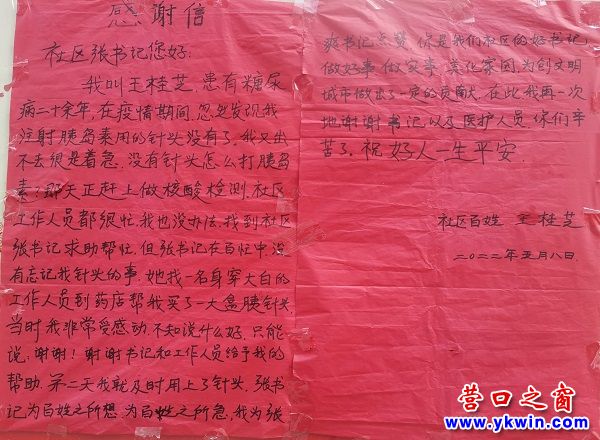 感谢信
社区张书记您好:
我叫王桂芝,患有糖尿
病二十余年,在疫情期间,忽然发现我
注射胰岛素用的针头没有了,我又出
不去很是着急,没有针头怎么打胰岛
素?那天正赶上做核酸检测.社区
工作人员都很忙,我也没办法,找到社区
张书记求助帮忙.但张书记在百忙中,没
有忘记我针头的事,她找一名身穿大白的
工作人员到药店帮我买了一大盒胰针头,
当时我非常受感动.不知说什么好.只能
说:谢谢!谢谢书记和工作人员给予我的
帮助.第二天我就及时用上了针头.张书
记为百姓之所想.为百姓之所急,我为张
爽书记点赞,你是我们社区的好书记
做好事做实事,美化家园,为创文明
城市做出了一定的贡献,在此我再一次
地谢谢书记以及医护人员,你们辛
苦了,祝好人一生平安.
社区百姓 王桂芝
二〇二二年五月八日.
营口之窗
www.ykwin.com